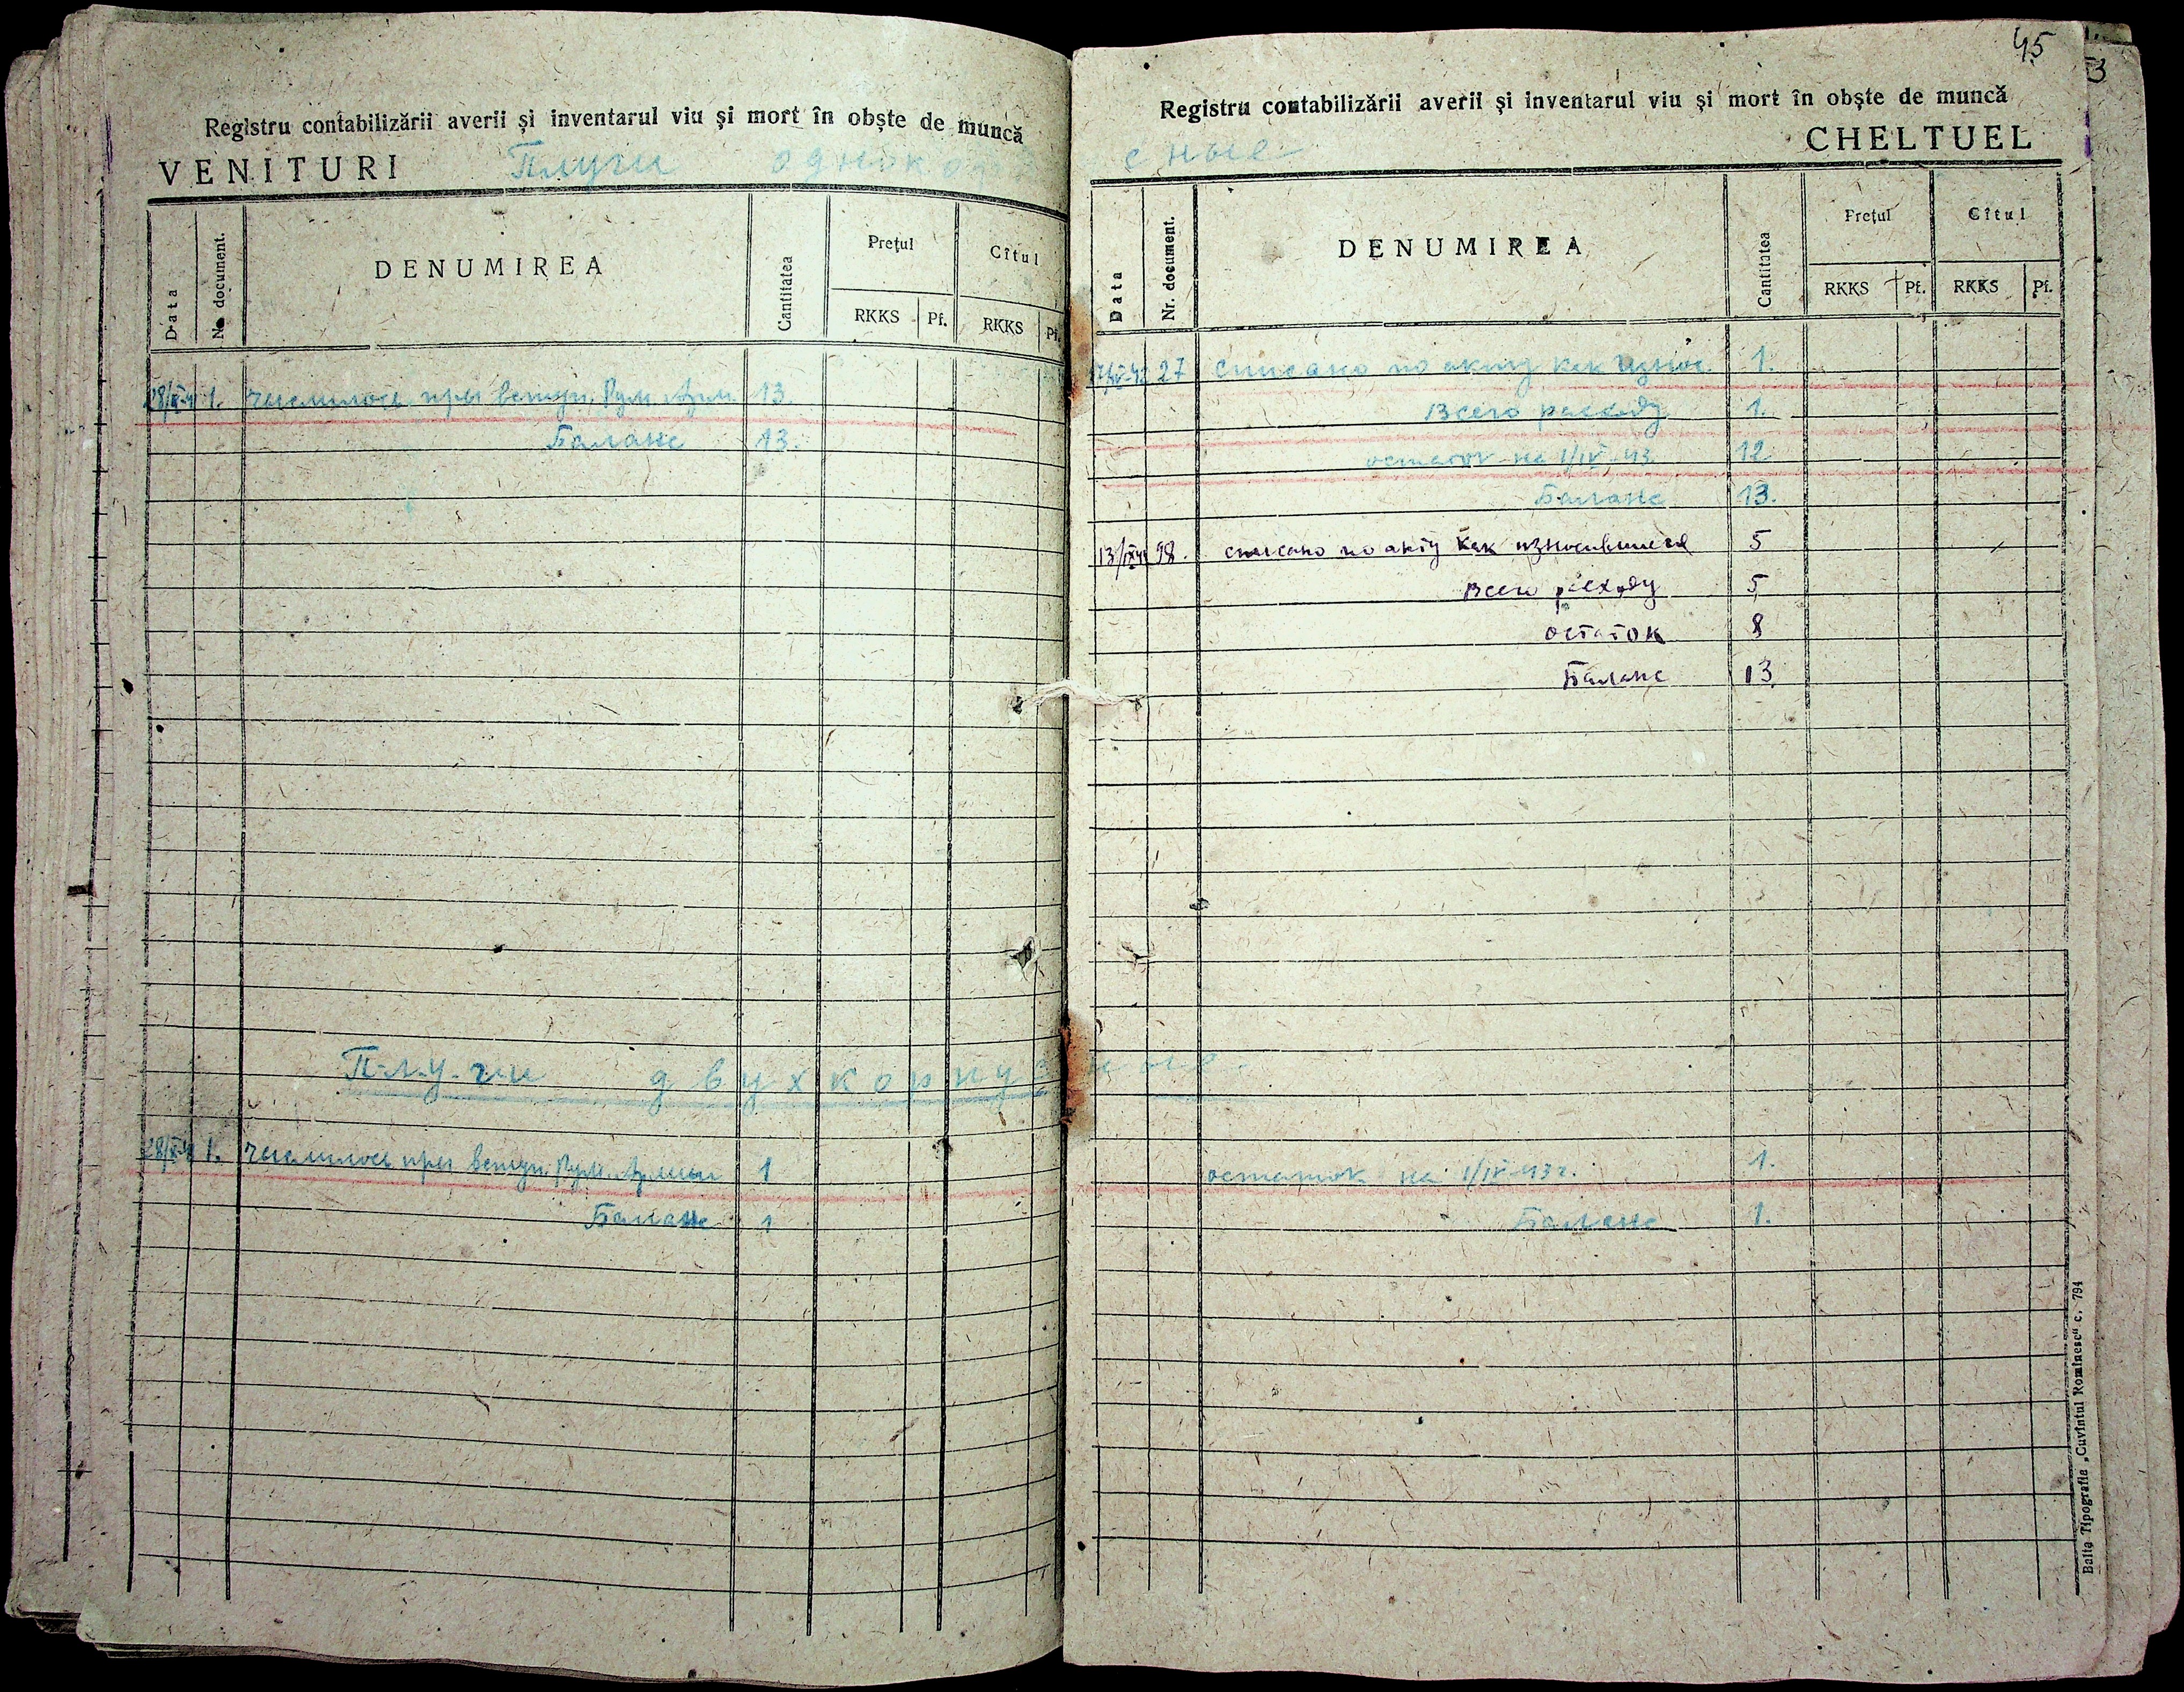 Registru contabilizării averii și inventarul viu și mort în obște de muncă
VENITURI Плуги однокорп
Data
No document.
DENUMIREA
Cantitatea
Prețul
Cîtul
RKKS Pf. RKKS Pf.
1. числилось при вступ. Рум. Арм. 13.
Баланс 13.
Плуги двухкорпусные.
1. числилось при вступ. Рум. Армии 1
Баланс 1
45
3
Registru contabilizării averii și inventarul viu și mort în obște de muncă
сные
CHELTUEL
Data
Nr. document.
DENUMIREA
Cantitatea
Prețul
Cîtul
RKKS Pf. RKKS Pf.
27 списано по акту как износ. 1.
Всего расходу 1.
остаток на 1/IV-43 12
Баланс 13.
98. списано по акту как износившиеся 5
Всего расходу 5
остаток 8
Баланс 13
остаток на 1/IV-43г. 1.
Баланс 1.
Balta Tipografia „Cuvîntul Romînesc" c. 794